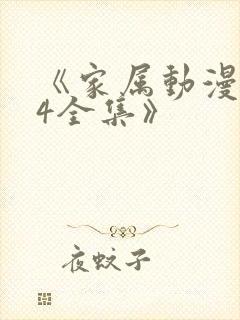 《家属動漫
4全集》
夜蚊子